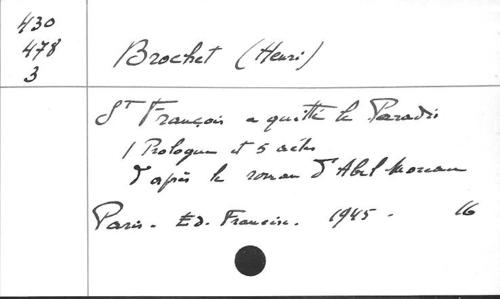 430
478
3
Brochet (Henri)
St François a quitté le Paradis
1 Prologue et 5 actes
d'après le roman d'Abel Moreau
Paris - Ed. Francisc. 1945 - 16